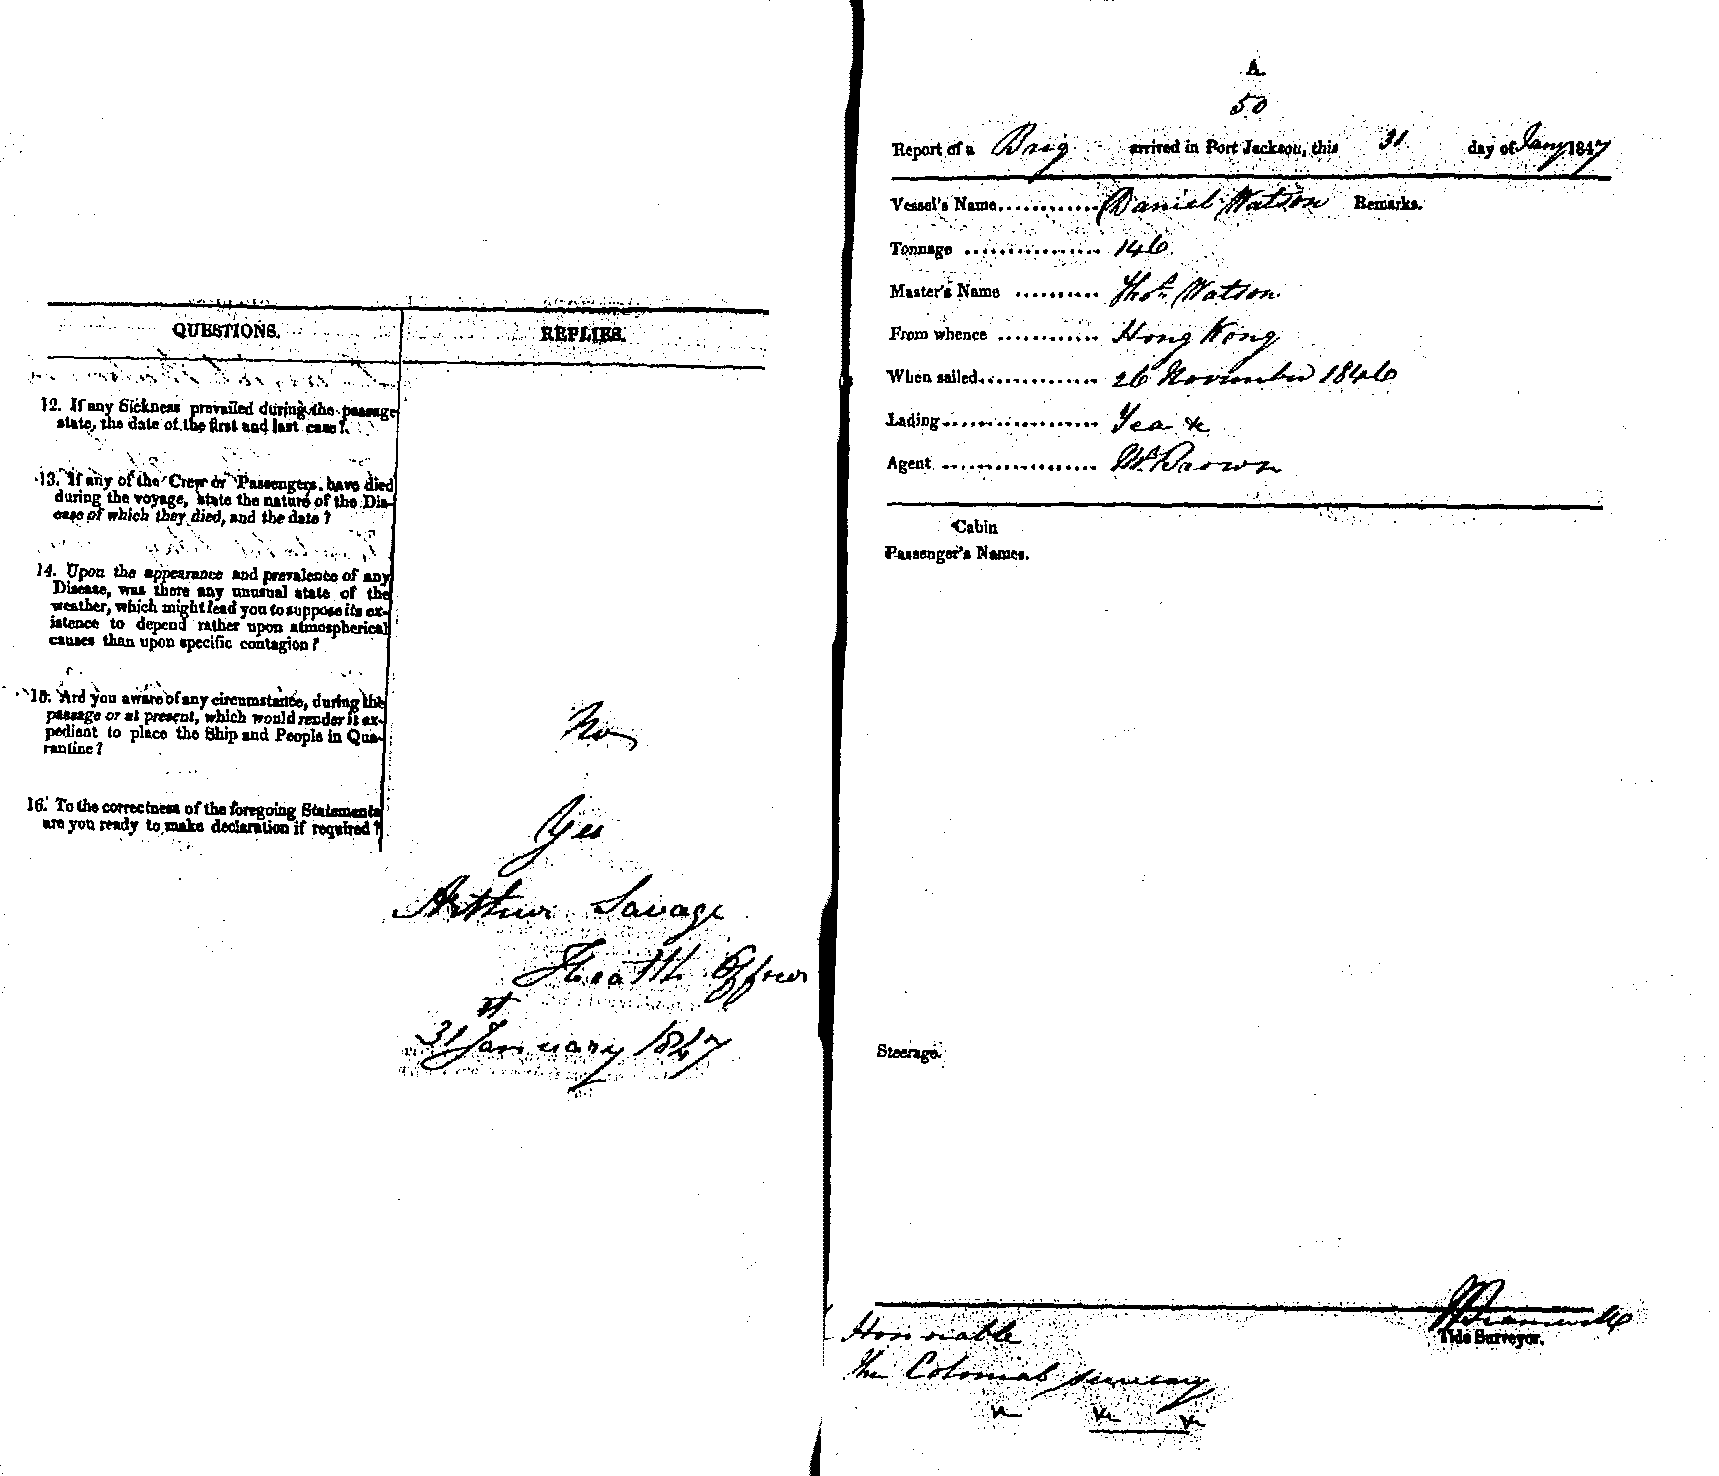 QUESTIONS.
REPLIES.
12. If any Sickness prevailed during the passage
state, the date of the first and last case?
13. If any of the Crew or Passengers, have died
during the voyage, state the nature of the Dis-
ease of which they died, and the date?
14. Upon the appearance and prevalence of any
Disease, was there any unusual state of the
weather, which might lead you to suppose its ex-
istence to depend rather upon atmospherical
causes than upon specific contagion?
15. Are you aware of any circumstance, during the
passage or at present, which would render it ex-
pedient to place the Ship and People in Qua-
rantine?
No
16. To the correctness of the foregoing Statements
are you ready to make declaration if required?
Yes
Arthur Savage
Health Officer
31st January 1847
A.
50
Report of a Brig arrived in Port Jackson, this 31 day of Jany 1847
Vessel's Name............ Daniel Watson Remarks.
Tonnage ................ 146
Master's Name .......... Thos. Watson
From whence ............ Hong Kong
When sailed.............. 26 November 1846
Lading.................. Tea &c
Agent .................. Mr Brown
Cabin
Passenger's Names.
Steerage.
Tide Surveyor.
Honorable
The Colonial Secretary